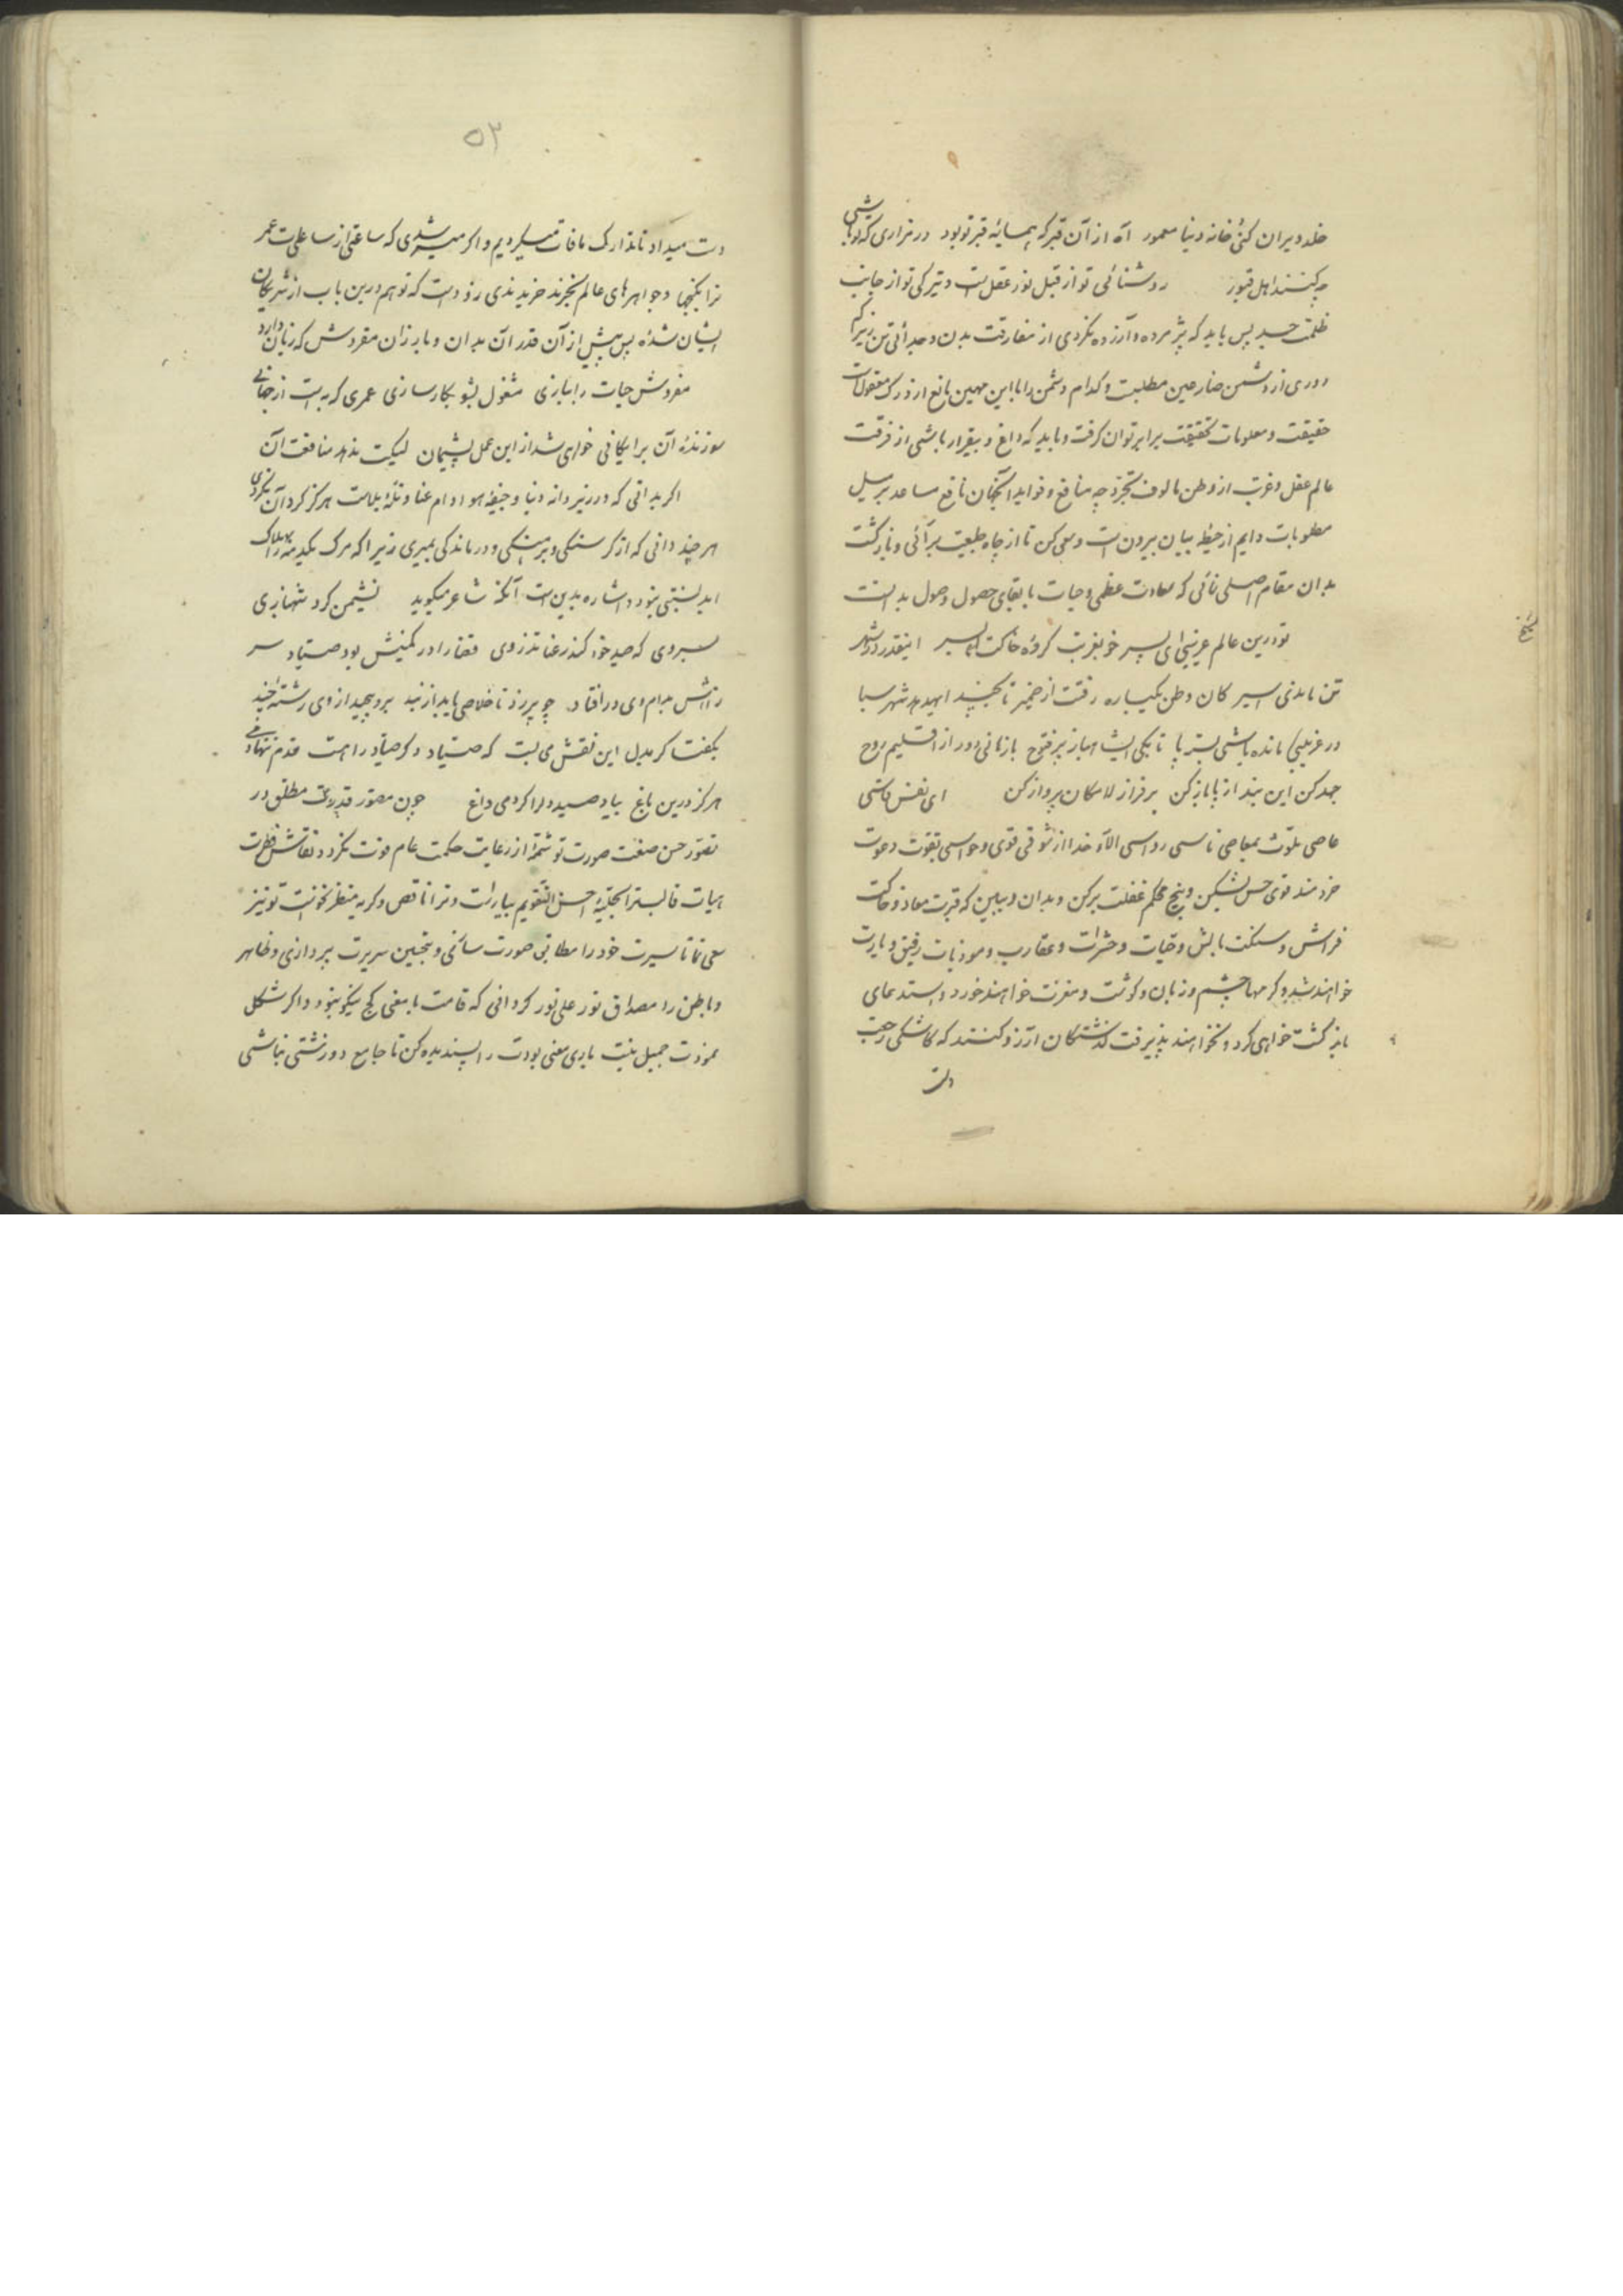 خلد ویران کنی خانه دنیا معمور آه از آن قبر که همسایه قبر تو بود در مزاری که تو باشی
چه کنند اهل قبور روشنائی تو از قبل نور عقلست و تیرگی تو از جانب
ظلمت جسد پس باید که پژمرده و آزرده نگردی از مفارقت بدن و جدائی تن زیرا که
دوری از دشمن ضار عین مطلبست و کدام دشمن را با این مهین مانع از درک معقولات
حقیقت و معلومات تحقیقت برابر توان گرفت و باید که داغ و بیقرار باشی از فرقت
عالم عقل و غربت از وطن مالوف تجرد چه منافع و فواید آنچنان نافع مساعد بر سبیل
مطلوبات دایم از حیطه بیان بیرون است و سعی کن تا از چاه طبیعت برآئی و بازگشت
بدان مقام اصلی نمائی که سعادت عظمی و حیات با بقای حصول وصول بدانست
تو درین عالم غریبی ای پسر خو بغربت کرده خاکت بسر اینقدر در شهر
تن ماندی اسیر کان وطن یکباره رفتت از ضمیر تا بچند ای هدهد شهر سبا
در غریبی مانده باشی بسته پا تا بکی ای شاهباز پر فتوح بازمانی دور از اقلیم روح
جهد کن این بند از پا باز کن بر فراز لامکان پرواز کن ای نفس
عاصی ملوث بمعاصی ناسی الآء خدا از قوی و حواسی بقوت دعوت
خردمند قوی حس بشکن و بیخ محکم غفلت بر کن و بدان و ببین که قبرت معاد و خاکت
فراش و سنگت بالش و حیات و حشرات و عقارب و موذیات رفیق و یارت
خواهند شد و کرمها چشم و زبان و گوشت و مغزت خواهند خورد و استدعای
بازگشت خواهی کرد و نخواهند پذیرفت گذشتگان آرزو کنند که کاشکی رجعت
دست
۵۳
دست میداد تا تدارک مافات میکردیم و اگر میسر شدی که ساعتی از ساعات عمر
ترا بگنجها و جواهرهای عالم بخرند خریدندی زود است که تو هم درین باب از شریکان
ایشان شده پس پیش از آن قدر آن بدان و بارزان مفروش که زیان دارد
مفروش حیات را ببازی مشغول بشو بکارسازی عمری که به است از جهانی
سوزنده آن برایگانی خواهی شد از این عمل پشیمان لیکن ندهد منافعت آن
اگر بدانی که در زیر دانه دنیا و جیفه هوا دام عنا و تله بلاست هرگز گرد آن نگردی
هر چند دانی که از گرسنگی و برهنگی و درماندگی بمیری زیرا که مرگ یکدمه را بهلاک
ابد نسبتی نبود و اشاره بدین است آنکه شاعر میگوید نشیمن کرد شهبازی
بسروی که صید خود کند رعنا تذروی قضا را در کمینش بود صیاد سر
زلفش بدام وی درافتاد چو پر زد تا خلاصی یابد از بند برو پیچید از وی رشته چند
بگفت گر بدل این نقش می بست که صیاد دگر صیاد را هست قدم ننهادمی
هرگز درین باغ بیاد صید دل را کردمی داغ چون مصور قدرت مطلق در
تصور حسن صنعت صورت تو شمه از رعایت حکمت عام فوت نکرد و نقاش فطرت
هیات قالبت را بحلیه احسن التقویم بیاراست و ترا ناقص و کریه منظر نخواست تو نیز
سعی نما تا سیرت خود را مطابق صورت سائی و بتحسین سریرت پردازی و ظاهر
و باطن را مصداق نور علی نور گردانی که قامت با معنی کج نیکو نبود و اگر شکل
نمودت جمیل نیست باری معنی بودت را پسندیده کن تا جامع دو زشتی نباشی